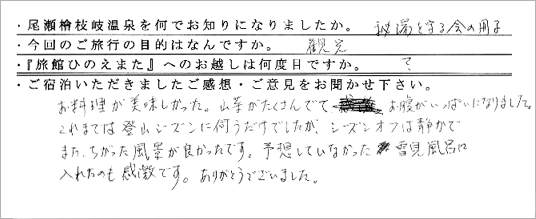 ・尾瀬檜枝岐温泉を何でお知りになりましたか。 秘湯を守る会の冊子
・今回のご旅行の目的はなんですか。 観光
・『旅館ひのえまた』へのお越しは何度目ですか。 2
・ご宿泊いただきましたご感想・ご意見をお聞かせ下さい。
お料理が美味しかった。山菜がたくさんでて お腹がいっぱいになりました。
これまでは登山シーズンに伺うだけでしたが、シーズンオフは静かで
また、ちがった風景が良かったです。予想していなかった 雪見風呂に
入れたのも感激です。ありがとうございました。